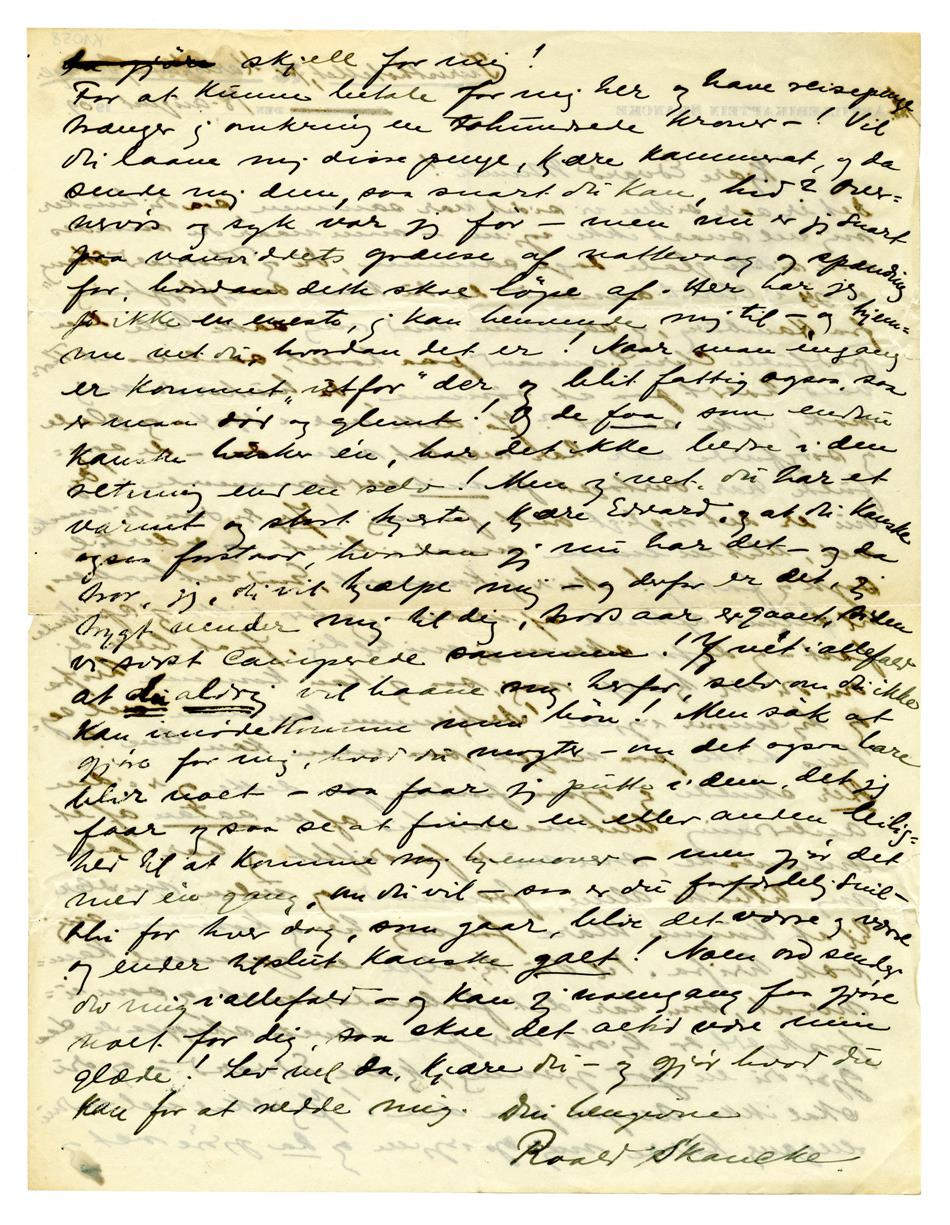 skjell for mig!
For at kunne betale for mig her og have reisepenge
trænger j omkring en tohundrede kroner –! Vil
du laane mig disse penge, kjære kammerat, og da
sende mig dem, saa snart du kan, hid? Over=
nervøs og syk var jeg før – men nu er jeg snart
paa vanviddets grænse af nattevaag og spænding
for, hvordan dette skal løpe af. Her har jeg
jo ikke en eneste, j kan henvende mig til – og hjem=
me vet du, hvordan det er! Naar man engang
er kommet „utfor" der og blit fattig ogsaa, saa
er man død og glemt! Og de faa, som endnu
kanske husker én, har det ikke bedre i den
retning end en selv! Men j vet, du har et
varmt og stort hjerte, kjære Edvard, og at du kanske
ogsaa forstaar, hvordan jeg nu har det – og da
tror jeg, du vil hjælpe mig – og derfor er det, jeg
trygt vender mig til dig, trods aar er gaaet, siden
vi sidst camperede sammen! Jeg vét i allefald
at du aldrig vil haane mig herfor, selv om du ikke
kan imødekomme min bøn! Men søk at
gjøre for mig, hvad du magter – om det ogsaa bare
blir noet – saa faar jeg putte i dem, det jeg
faar og saa se at finde en eller anden leilig=
hed til at komme mig hjemover – men gjør det
med én gang, om du vil – saa er du forfærdelig snil –
thi for hver dag, som gaar, blir det værre og værre
og ender tilslut kanske galt! Noen ord sender
du mig i allefald – og kan j noengang faa gjøre
noet for dig, saa skal det altid være min
glæde! Lev vel da, kjære du – og gjør hvad du
kan for at redde mig. Din hengivne
Roald Skancke